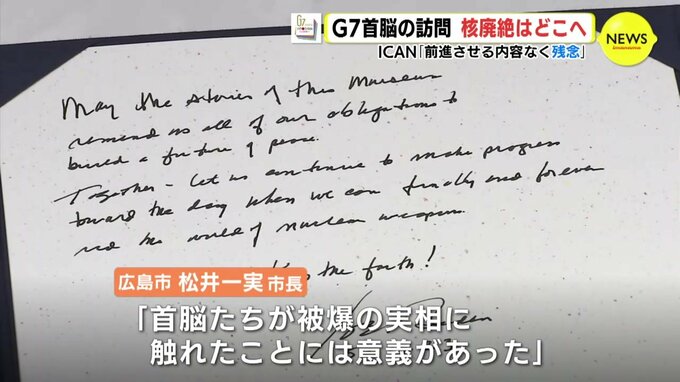 G7
G7首脳の訪問 核廃絶はどこへ
ICAN「前進させる内容なく残念」
NEWS
May the stories of this Museum
remind us all of our obligations to
build a future of peace.
Together - let us continue to make progress
toward the day when we can finally and forever
rid the world of nuclear weapons.
the faith!
広島市 松井一実 市長
「首脳たちが被爆の実相に
触れたことには意義があった」